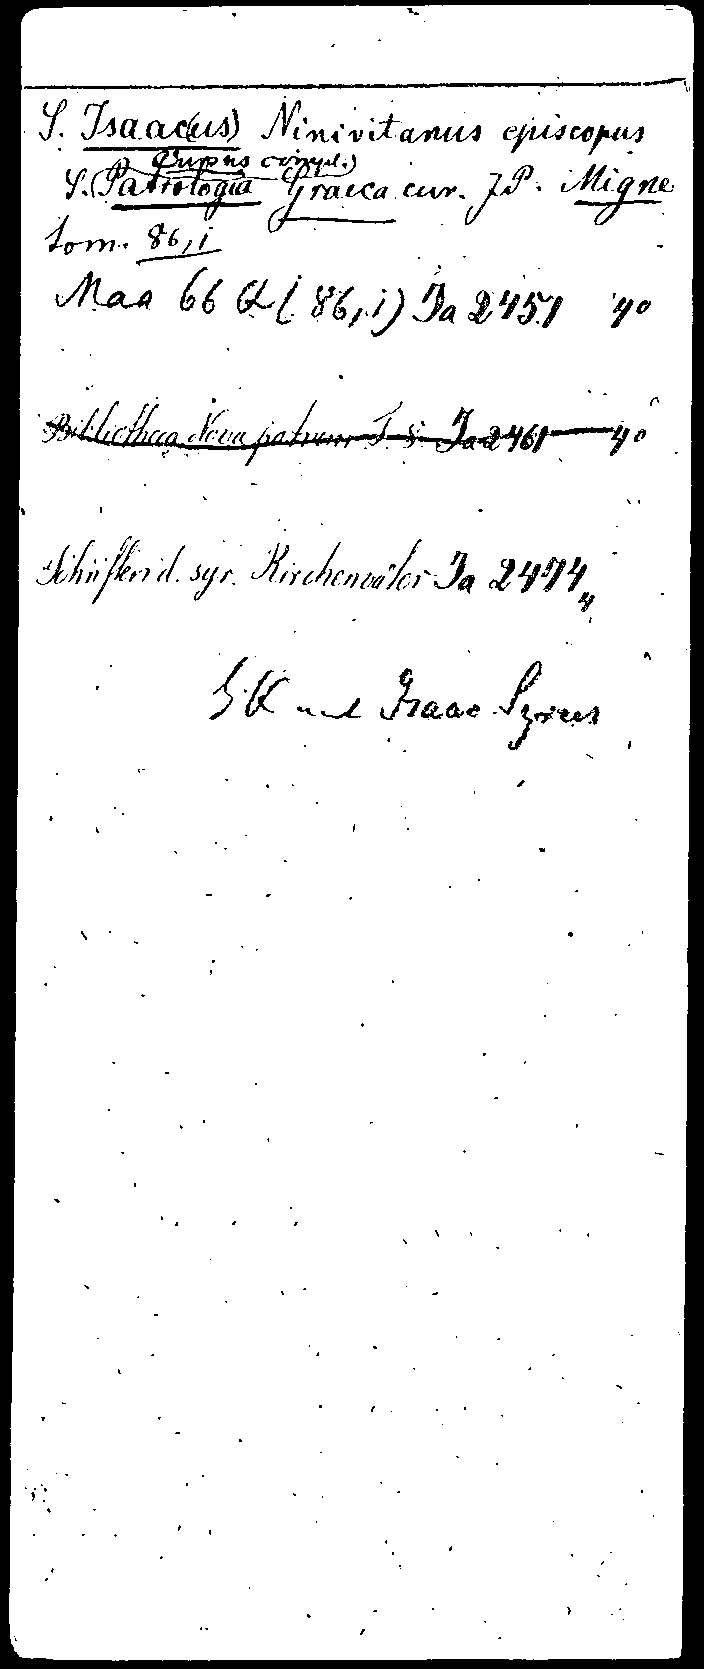 S. Isaac(us) Ninivitanus episcopus
(Cursus compl.)
S. Patrologia Graeca cur. J.P. Migne
tom. 86,i
Maa 66 (86,i) Ia 2451 4°
Bibliotheca Nova patrum T. 8. Ia 2461 4°
Schriften d. syr. Kirchenväter Ia 2474
und Isaac Syrus